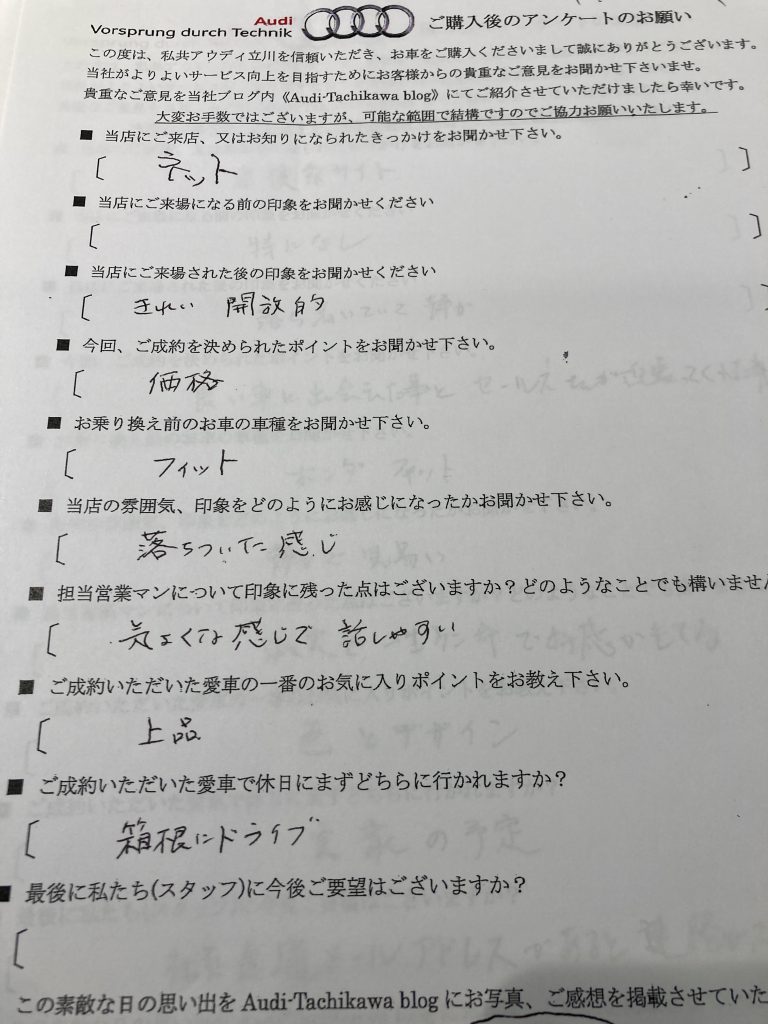 Audi
Vorsprung durch Technik
ご購入後のアンケートのお願い
この度は、私共アウディ立川を信頼いただき、お車をご購入くださいまして誠にありがとうございます。
当社がよりよいサービス向上を目指すためにお客様からの貴重なご意見をお聞かせ下さいませ。
貴重なご意見を当社ブログ内《Audi-Tachikawa blog》にてご紹介させていただけましたら幸いです。
大変お手数ではございますが、可能な範囲で結構ですのでご協力お願いいたします。
■ 当店にご来店、又はお知りになられたきっかけをお聞かせ下さい。
[ ネット ]
■ 当店にご来場になる前の印象をお聞かせください
[ ]
■ 当店にご来場された後の印象をお聞かせください
[ きれい 開放的 ]
■ 今回、ご成約を決められたポイントをお聞かせ下さい。
[ 価格
■ お乗り換え前のお車の車種をお聞かせ下さい。
[ フィット
■ 当店の雰囲気、印象をどのようにお感じになったかお聞かせ下さい。
[ 落ちついた感じ
■ 担当営業マンについて印象に残った点はございますか？どのようなことでも構いません
[ 気さくな感じで話しやすい
■ ご成約いただいた愛車の一番のお気に入りポイントをお教え下さい。
[ 上品
■ ご成約いただいた愛車で休日にまずどちらに行かれますか？
[ 箱根にドライブ
■ 最後に私たち(スタッフ)に今後ご要望はございますか？
[
この素敵な日の思い出を Audi-Tachikawa blog にお写真、ご感想を掲載させていた